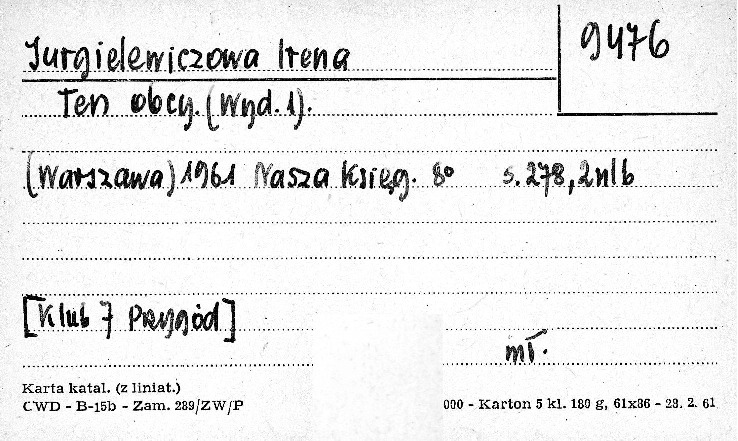 9476
Jurgielewiczowa Irena
Ten obcy. (Wyd. 1).
(Warszawa) 1961 Nasza Księg. 8° s. 278, 2 nlb
[Klub 7 Przygód]
mł.
Karta katal. (z liniat.)
CWD - B-15b - Zam. 289/ZW/P
000 - Karton 5 kl. 180 g, 61x86 - 23. 2. 61